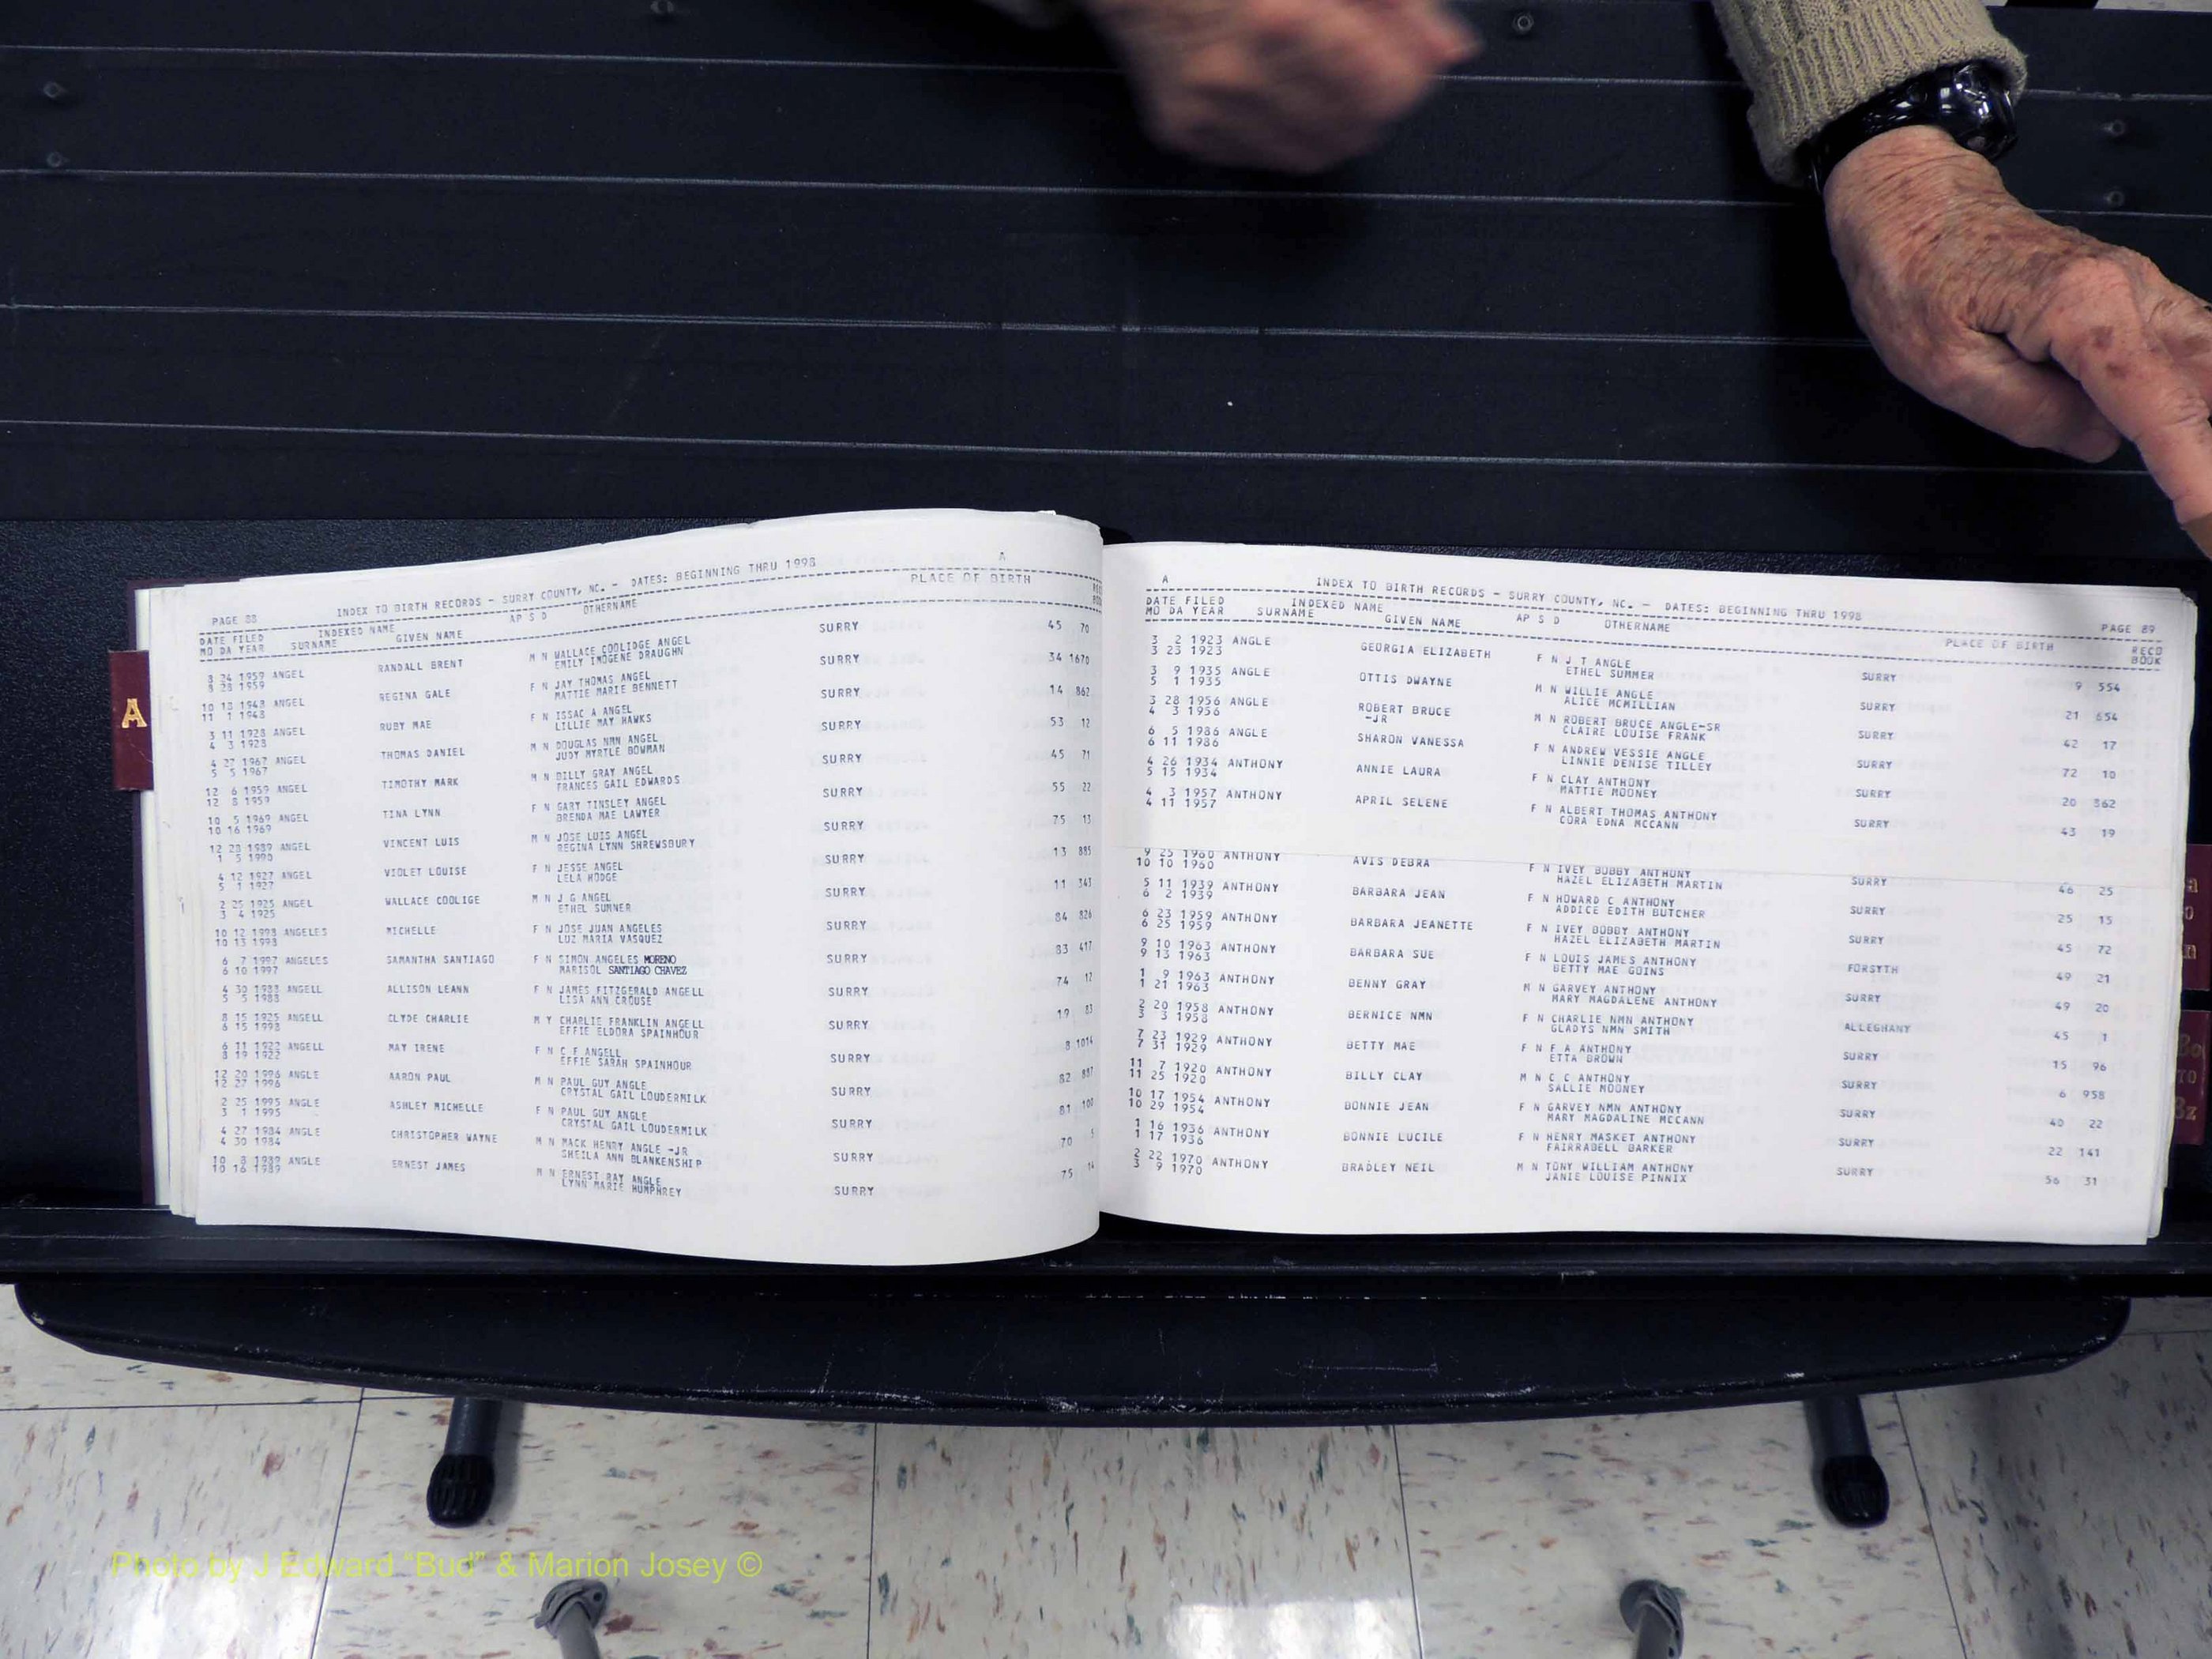 A
PAGE 88 INDEX TO BIRTH RECORDS - SURRY COUNTY, NC. - DATES: BEGINNING THRU 1998 A
DATE FILED INDEXED NAME AP S D OTHERNAME PLACE OF BIRTH
MO DA YEAR SURNAME GIVEN NAME
8 24 1959 ANGEL RANDALL BRENT M N WALLACE COOLIDGE ANGEL SURRY 45 70
8 28 1959 EMILY IMOGENE DRAUGHN
10 18 1948 ANGEL REGINA GALE F N JAY THOMAS ANGEL SURRY 34 1670
11 1 1948 MATTIE MARIE BENNETT
3 11 1928 ANGEL RUBY MAE F N ISSAC A ANGEL SURRY 14 862
4 3 1928 LILLIE MAY HAWKS
4 27 1967 ANGEL THOMAS DANIEL M N DOUGLAS NMN ANGEL SURRY 53 12
5 5 1967 JUDY MYRTLE BOWMAN
12 6 1959 ANGEL TIMOTHY MARK M N BILLY GRAY ANGEL SURRY 45 71
12 8 1959 FRANCES GAIL EDWARDS
10 5 1969 ANGEL TINA LYNN F N GARY TINSLEY ANGEL SURRY 55 22
10 16 1969 BRENDA MAE LAWYER
12 28 1989 ANGEL VINCENT LUIS M N JOSE LUIS ANGEL SURRY 75 13
1 5 1990 REGINA LYNN SHREWSBURY
4 12 1927 ANGEL VIOLET LOUISE F N JESSE ANGEL SURRY 13 885
5 1 1927 LELA HODGE
2 25 1925 ANGEL WALLACE COOLIGE M N J G ANGEL SURRY 11 343
3 4 1925 ETHEL SUMNER
10 12 1998 ANGELES MICHELLE F N JOSE JUAN ANGELES SURRY 84 826
10 13 1998 LUZ MARIA VASQUEZ
6 7 1997 ANGELES SAMANTHA SANTIAGO F N SIMON ANGELES MORENO SURRY 83 417
6 10 1997 MARISOL SANTIAGO CHAVEZ
4 30 1988 ANGELL ALLISON LEANN F N JAMES FITZGERALD ANGELL SURRY 74 12
5 5 1988 LISA ANN CROUSE
8 15 1925 ANGELL CLYDE CHARLIE M Y CHARLIE FRANKLIN ANGELL SURRY 19 83
6 15 1998 EFFIE ELDORA SPAINHOUR
6 11 1922 ANGELL MAY IRENE F N C F ANGELL SURRY 8 1014
8 19 1922 EFFIE SARAH SPAINHOUR
12 20 1996 ANGLE AARON PAUL M N PAUL GUY ANGLE SURRY 82 887
12 27 1996 CRYSTAL GAIL LOUDERMILK
2 25 1995 ANGLE ASHLEY MICHELLE F N PAUL GUY ANGLE SURRY 81 100
3 1 1995 CRYSTAL GAIL LOUDERMILK
4 27 1984 ANGLE CHRISTOPHER WAYNE M N MACK HENRY ANGLE -JR SURRY 70
4 30 1984 SHEILA ANN BLANKENSHIP
10 8 1989 ANGLE ERNEST JAMES M N ERNEST RAY ANGLE SURRY 75 14
10 16 1989 LYNN MARIE HUMPHREY
A INDEX TO BIRTH RECORDS - SURRY COUNTY, NC. - DATES: BEGINNING THRU 1998 PAGE 89
DATE FILED INDEXED NAME AP S D OTHERNAME PLACE OF BIRTH RECO
MO DA YEAR SURNAME GIVEN NAME BOOK
3 2 1923 ANGLE GEORGIA ELIZABETH F N J T ANGLE SURRY 9 554
3 23 1923 ETHEL SUMMER
3 9 1935 ANGLE OTTIS DWAYNE M N WILLIE ANGLE SURRY 21 654
5 1 1935 ALICE MCMILLIAN
3 28 1956 ANGLE ROBERT BRUCE M N ROBERT BRUCE ANGLE-SR SURRY 42 17
4 3 1956 -JR CLAIRE LOUISE FRANK
6 5 1986 ANGLE SHARON VANESSA F N ANDREW VESSIE ANGLE SURRY 72 10
6 11 1986 LINNIE DENISE TILLEY
4 26 1934 ANTHONY ANNIE LAURA F N CLAY ANTHONY SURRY 20 562
5 15 1934 MATTIE MOONEY
4 3 1957 ANTHONY APRIL SELENE F N ALBERT THOMAS ANTHONY SURRY 43 19
4 11 1957 CORA EDNA MCCANN
9 25 1960 ANTHONY AVIS DEBRA F N IVEY BOBBY ANTHONY SURRY 46 25
10 10 1960 HAZEL ELIZABETH MARTIN
5 11 1939 ANTHONY BARBARA JEAN F N HOWARD C ANTHONY SURRY 25 15
6 2 1939 ADDICE EDITH BUTCHER
6 23 1959 ANTHONY BARBARA JEANETTE F N IVEY BOBBY ANTHONY SURRY 45 72
6 25 1959 HAZEL ELIZABETH MARTIN
9 10 1963 ANTHONY BARBARA SUE F N LOUIS JAMES ANTHONY FORSYTH 49 21
9 13 1963 BETTY MAE GOINS
1 9 1963 ANTHONY BENNY GRAY M N GARVEY ANTHONY SURRY 49 20
1 21 1963 MARY MAGDALENE ANTHONY
2 20 1958 ANTHONY BERNICE NMN F N CHARLIE NMN ANTHONY ALLEGHANY 45 1
3 3 1958 GLADYS NMN SMITH
7 23 1929 ANTHONY BETTY MAE F N F A ANTHONY SURRY 15 96
7 31 1929 ETTA BROWN
11 7 1920 ANTHONY BILLY CLAY M N C C ANTHONY SURRY 6 958
11 25 1920 SALLIE MOONEY
10 17 1954 ANTHONY BONNIE JEAN F N GARVEY NMN ANTHONY SURRY 40 22
10 29 1954 MARY MAGDALINE MCCANN
1 16 1936 ANTHONY BONNIE LUCILE F N HENRY MASKET ANTHONY SURRY 22 141
1 17 1936 FAIRRABELL BARKER
2 22 1970 ANTHONY BRADLEY NEIL M N TONY WILLIAM ANTHONY SURRY 56 31
3 9 1970 JANIE LOUISE PINNIX
TO
Bz
Photo by J Edward "Bud" & Marion Josey ©